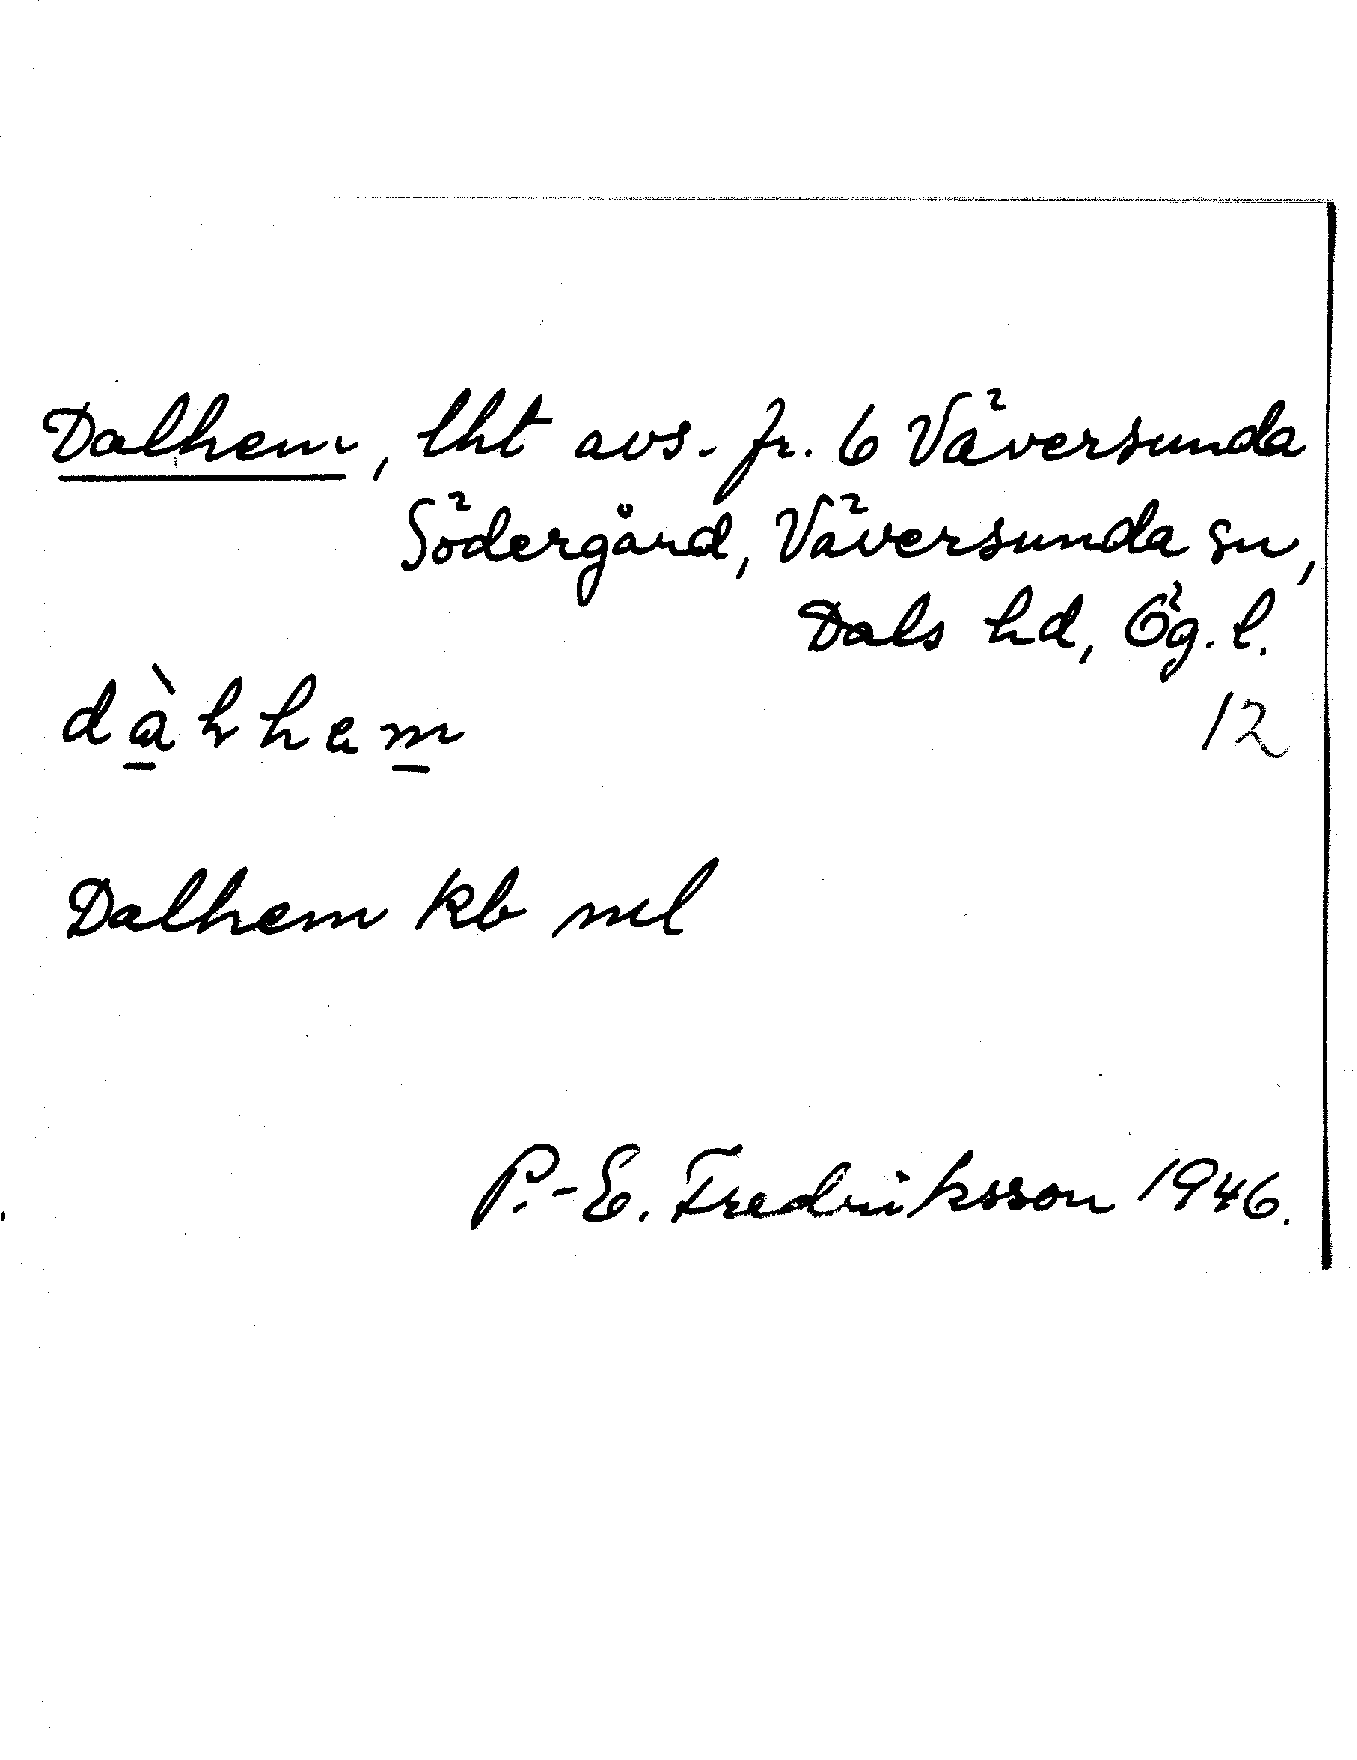 Dalhem, lht avs. fr. 6 Väversunda
Södergård, Väversunda sn,
Dals hd, Ög. l.
12
Dalhem kb ml
P.-E. Fredriksson 1946.